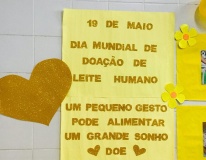 19 DE MAIO
DIA MUNDIAL DE
DOAÇÃO DE
LEITE HUMANO
UM PEQUENO GESTO
PODE ALIMENTAR
UM GRANDE SONHO
DOE